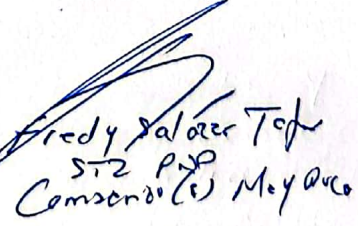 Fredy Salazar Tafur
ST2 PNP
Comisario (e) Mayorca